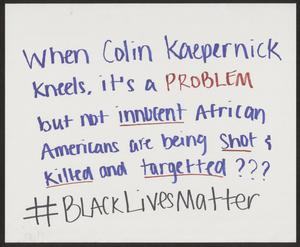 When Colin Kaepernick
Kneels, it's a PROBLEM
but not innocent African
Americans are being shot &
killed and targetted ???
#BLACKLivesMatter